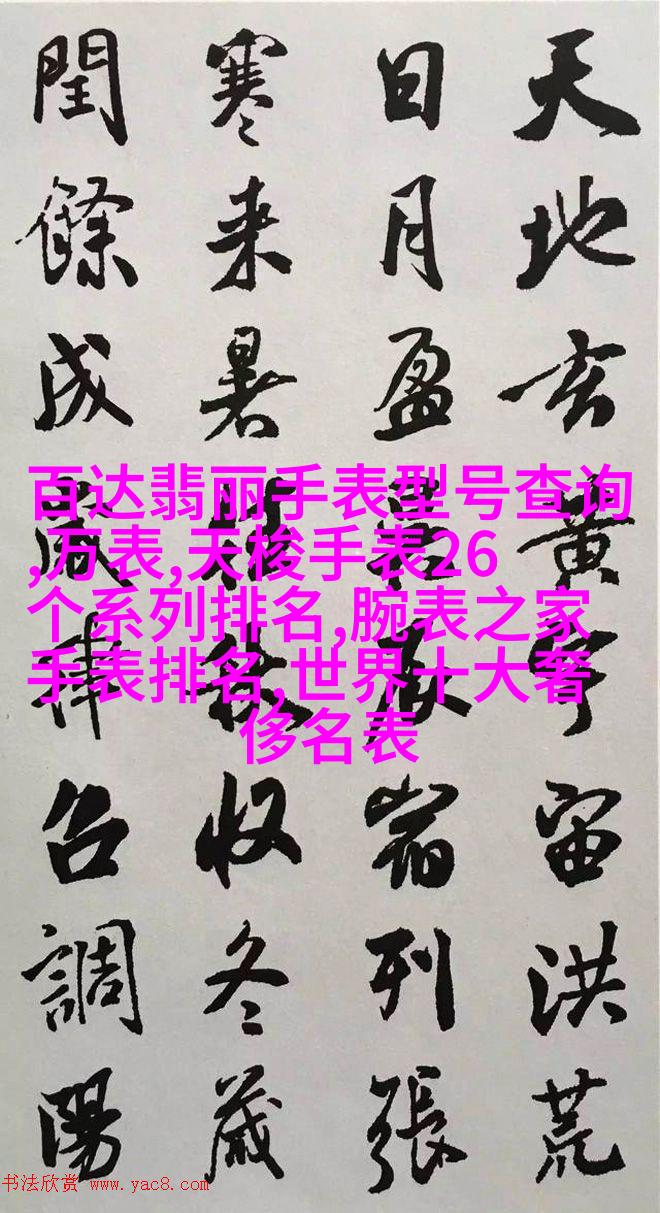 天地玄黃宇宙洪荒
日月盈昃辰宿列張
寒来暑往秋收冬蔵
閏餘成歲律召調陽
百达翡丽手表型号查询
,万表,天梭手表26
个系列排名,腕表之家
手表排名,世界十大奢
侈名表
书法欣赏 www.yac8.com